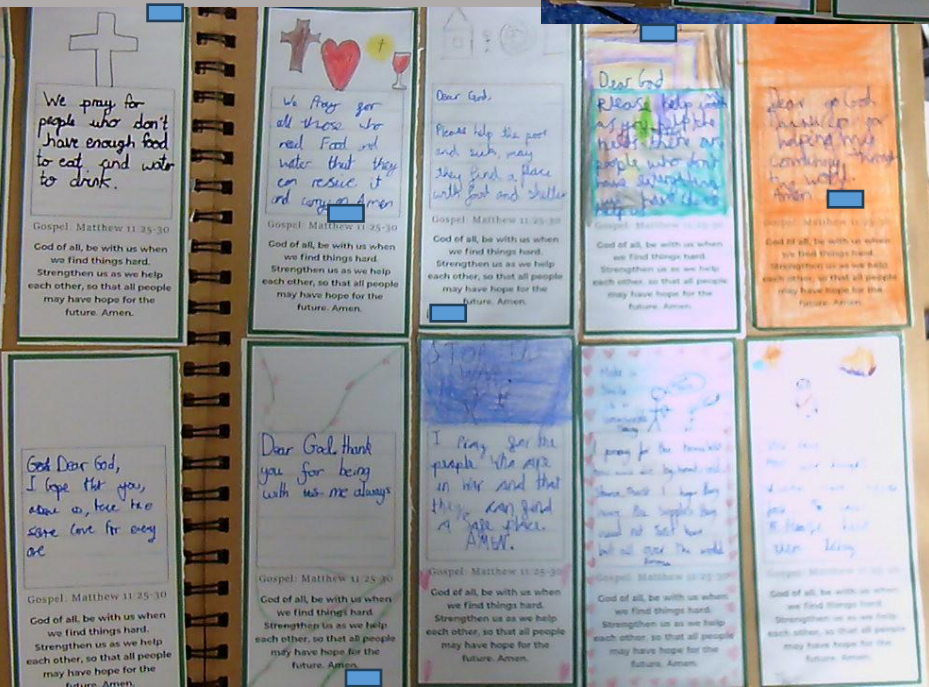 We pray for
people who don't
have enough food
to eat and water
to drink.
Gospel: Matthew 11:25-30
God of all, be with us when
we find things hard.
Strengthen us as we help
each other, so that all people
may have hope for the
future. Amen.
We Pray for
all those who
need Food and
water that they
can resive it
and carry on Amen
Gospel: Matthew 11:25-30
God of all, be with us when
we find things hard.
Strengthen us as we help
each other, so that all people
may have hope for the
future. Amen.
Dear God,
Please help the poor
and sick, may
they find a place
with food and shelter
Gospel: Matthew 11:25-30
God of all, be with us when
we find things hard.
Strengthen us as we help
each other, so that all people
may have hope for the
future. Amen.
Dear God
Please help
as you help the
people who don't
have everything
we have
help us
Gospel: Matthew 11:25-30
God of all, be with us when
we find things hard.
Strengthen us as we help
each other, so that all people
may have hope for the
future. Amen.
Dear God
my
world.
Amen
Gospel: Matthew 11:25-30
God of all, be with us when
we find things hard.
Strengthen us as we help
each other, so that all people
may have hope for the
future. Amen.
Dear God,
I hope that you,
above us, have the
same love for every
one
Gospel: Matthew 11:25-30
God of all, be with us when
we find things hard.
Strengthen us as we help
each other, so that all people
may have hope for the
future. Amen.
Dear God, thank
you for being
with me always
Gospel: Matthew 11:25-30
God of all, be with us when
we find things hard.
Strengthen us as we help
each other, so that all people
may have hope for the
future. Amen.
STOP
I Pray for the
people who are
in war and that
they can find
a safe place.
AMEN.
Gospel: Matthew 11:25-30
God of all, be with us when
we find things hard.
Strengthen us as we help
each other, so that all people
may have hope for the
future. Amen.
Make
Smile
for the homeless
I hope they
the supplies they
need not just here
but all over the world
Gospel: Matthew 11:25-30
God of all, be with us when
we find things hard.
Strengthen us as we help
each other, so that all people
may have hope for the
future. Amen.
God of all, be with us when
we find things hard.
Strengthen us as we help
each other, so that all people
may have hope for the
future. Amen.